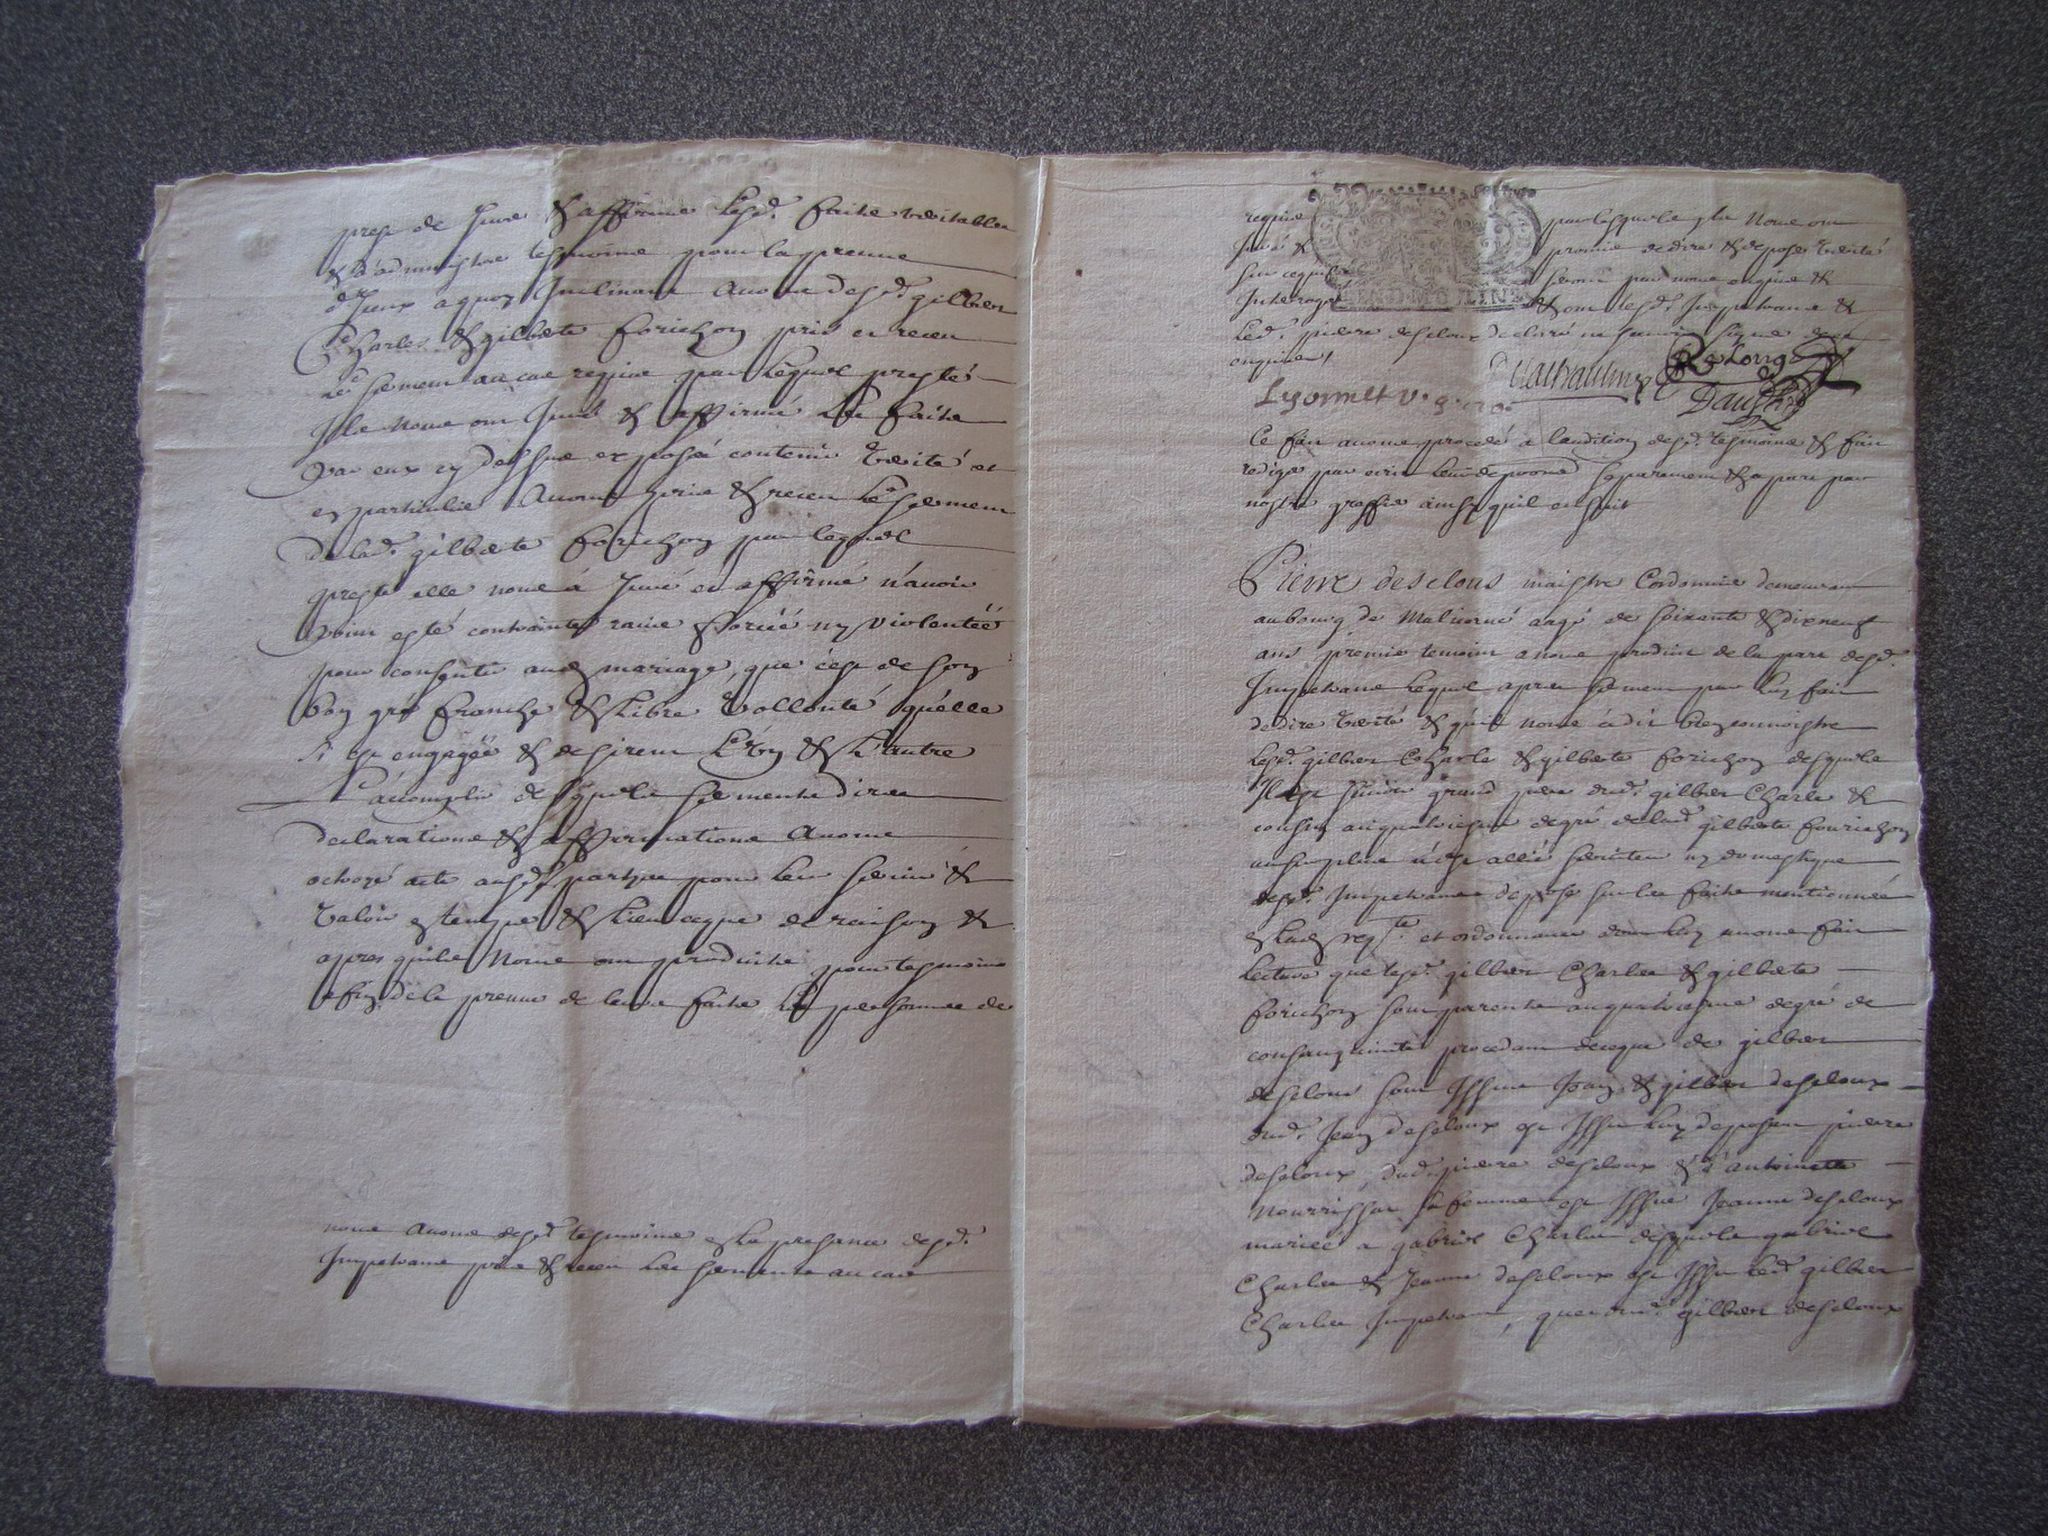 prest de Jurer & affirmer lesd. faits veritables
& d'administrer tesmoins pour la preuve
d'Jceux a quoy Inclinant Avons desd. gilbert
Charles & gilberte forichon pris et receu
le serment au cas requis par lequel presté
Jls nous ont Juré & affirmé les faits
par eux cy dessus exposés contenir verité et
en particulier Avons pris & receu le serment
de lad. gilberte forichon par lequel
presté elle nous à Juré et affirmé n'avoir
point esté contrainte ravie forcée ny violentée
pour consentir aud mariage, que c'est de son
bon gré franche & libre vollonté quélle
s'i est engagée & desirent L'un & L'autre
L'acomplir desquels serments dires
declarations & affirmations Avons
octroyé acte ausd. partyes pour leur servir &
valoir en temps & lieu ce que de raison &
apres qu'ils Nous ont produits pour tesmoins
afin de la preuve de leurs faits les personnes de
nous avons desd tesmoins en la presance desd.
Impetrans pris & receu les serments au cas
requis par lesquels Jls Nous ont
Juré & promis de dire & deposer verité
sur ce qu'ils seront par nous enquis &
Interrogés & ont lesd. Impetrans &
led. pierre descloux declaré ne sçavoir signer de ce
enquis
Lyonnet
Ce fait avons procedé a l'audition desd. tesmoins & fait
rediger par ecrit leurs depositions separement & apart par
nostre greffier ainsy quil ensuit
Pierre desclous maistre Cordonnier demeurant
au bourg de Malicorne aagé de soixante & dix neuf
ans premier temoin a nous produit de la part desd.
Impetrans lequel apres serment par luy fait
de dire verité & qu'il nous à dit bien connoistre
lesd. gilbert Charle & gilberte forichon desquels
Jl est sçavoir grand pere dud. gilbert Charle &
cousin au quatriesme degré de lad gilberte fourichon
au surplus n'est allié serviteur ny domestique
desd. Impetrans depose sur les faits mentionnés
en lad reqte et ordonnance dont luy avons fait
Lecture que lesd. gilbert Charles & gilberte
forichon sont parents au quatriesme degré de
consanguinité procedant de ce que de gilbert
desclous sont Jssus Jean & gilbert descloux
dud. Jean descloux est Jssu luy deposant pierre
descloux, dud. pierre descloux & d'antoinette
Nourrissat sa femme est Jssue Jeanne desclous
mariée a gabriel Charles desquels gabriel
Charles & Jeanne desclous est Jssu led. gilbert
Charles Impetrant, que dud. gilbert desclous